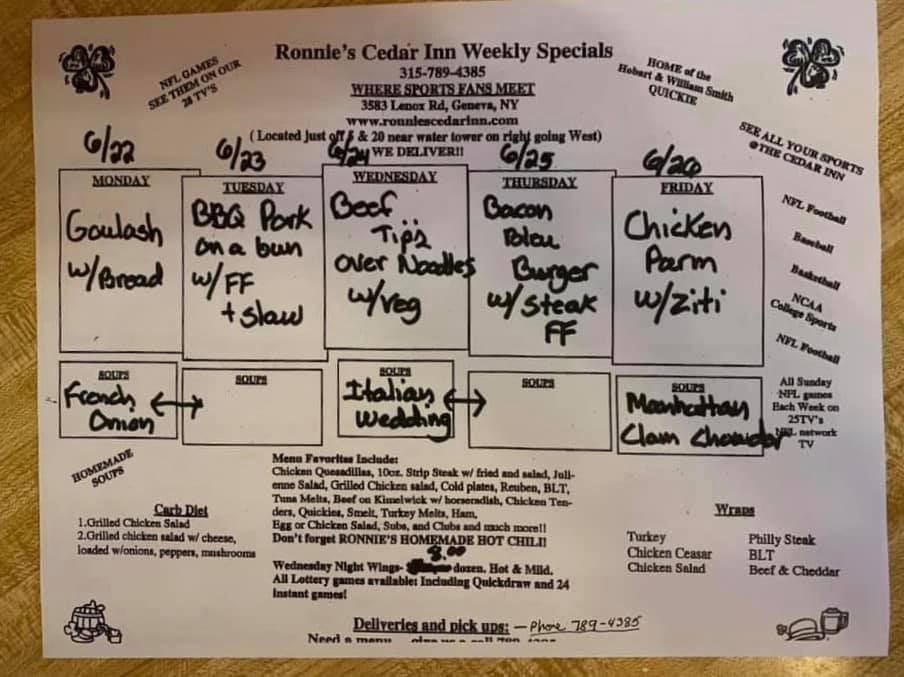 Ronnie's Cedar Inn Weekly Specials
315-789-4385
WHERE SPORTS FANS MEET
3583 Lenox Rd, Geneva, NY
www.ronniescedarinn.com
( Located just off 5 & 20 near water tower on right going West)
WE DELIVER!!
NFL GAMES
SEE THEM ON OUR
28 TV'S
HOME of the
Hobart & William Smith
QUICKIE
SEE ALL YOUR SPORTS
@THE CEDAR INN
NFL Football
Baseball
Basketball
NCAA
College Sports
NFL Football
All Sunday
NFL games
Each Week on
25TV's
NFL network
TV
6/22
MONDAY
Goulash
w/Bread
6/23
TUESDAY
BBQ Pork
on a bun
w/FF
+ slaw
6/24
WEDNESDAY
Beef
Tips
over Noodles
w/veg
6/25
THURSDAY
Bacon
Bleu
Burger
w/steak
FF
6/26
FRIDAY
Chicken
Parm
w/ziti
SOUPS
French
Onion
SOUPS
SOUPS
Italian
Wedding
SOUPS
SOUPS
Manhattan
Clam Chowder
HOMEMADE
SOUPS
Carb Diet
1.Grilled Chicken Salad
2.Grilled chicken salad w/ cheese,
loaded w/onions, peppers, mushrooms
Menu Favorites Include:
Chicken Quesadillas, 10oz. Strip Steak w/ fried and salad, Juli-
enne Salad, Grilled Chicken salad, Cold plates, Reuben, BLT,
Tuna Melts, Beef on Kimelwick w/ horseradish, Chicken Ten-
ders, Quickies, Smelt, Turkey Melts, Ham,
Egg or Chicken Salad, Subs, and Clubs and much more!!
Don't forget RONNIE'S HOMEMADE HOT CHILI!
8.00
Wednesday Night Wings- dozen. Hot & Mild.
All Lottery games available: Including Quickdraw and 24
Instant games!
Wraps
Turkey
Chicken Ceasar
Chicken Salad
Philly Steak
BLT
Beef & Cheddar
Deliveries and pick ups: - Phone 789-4385
Need a menu